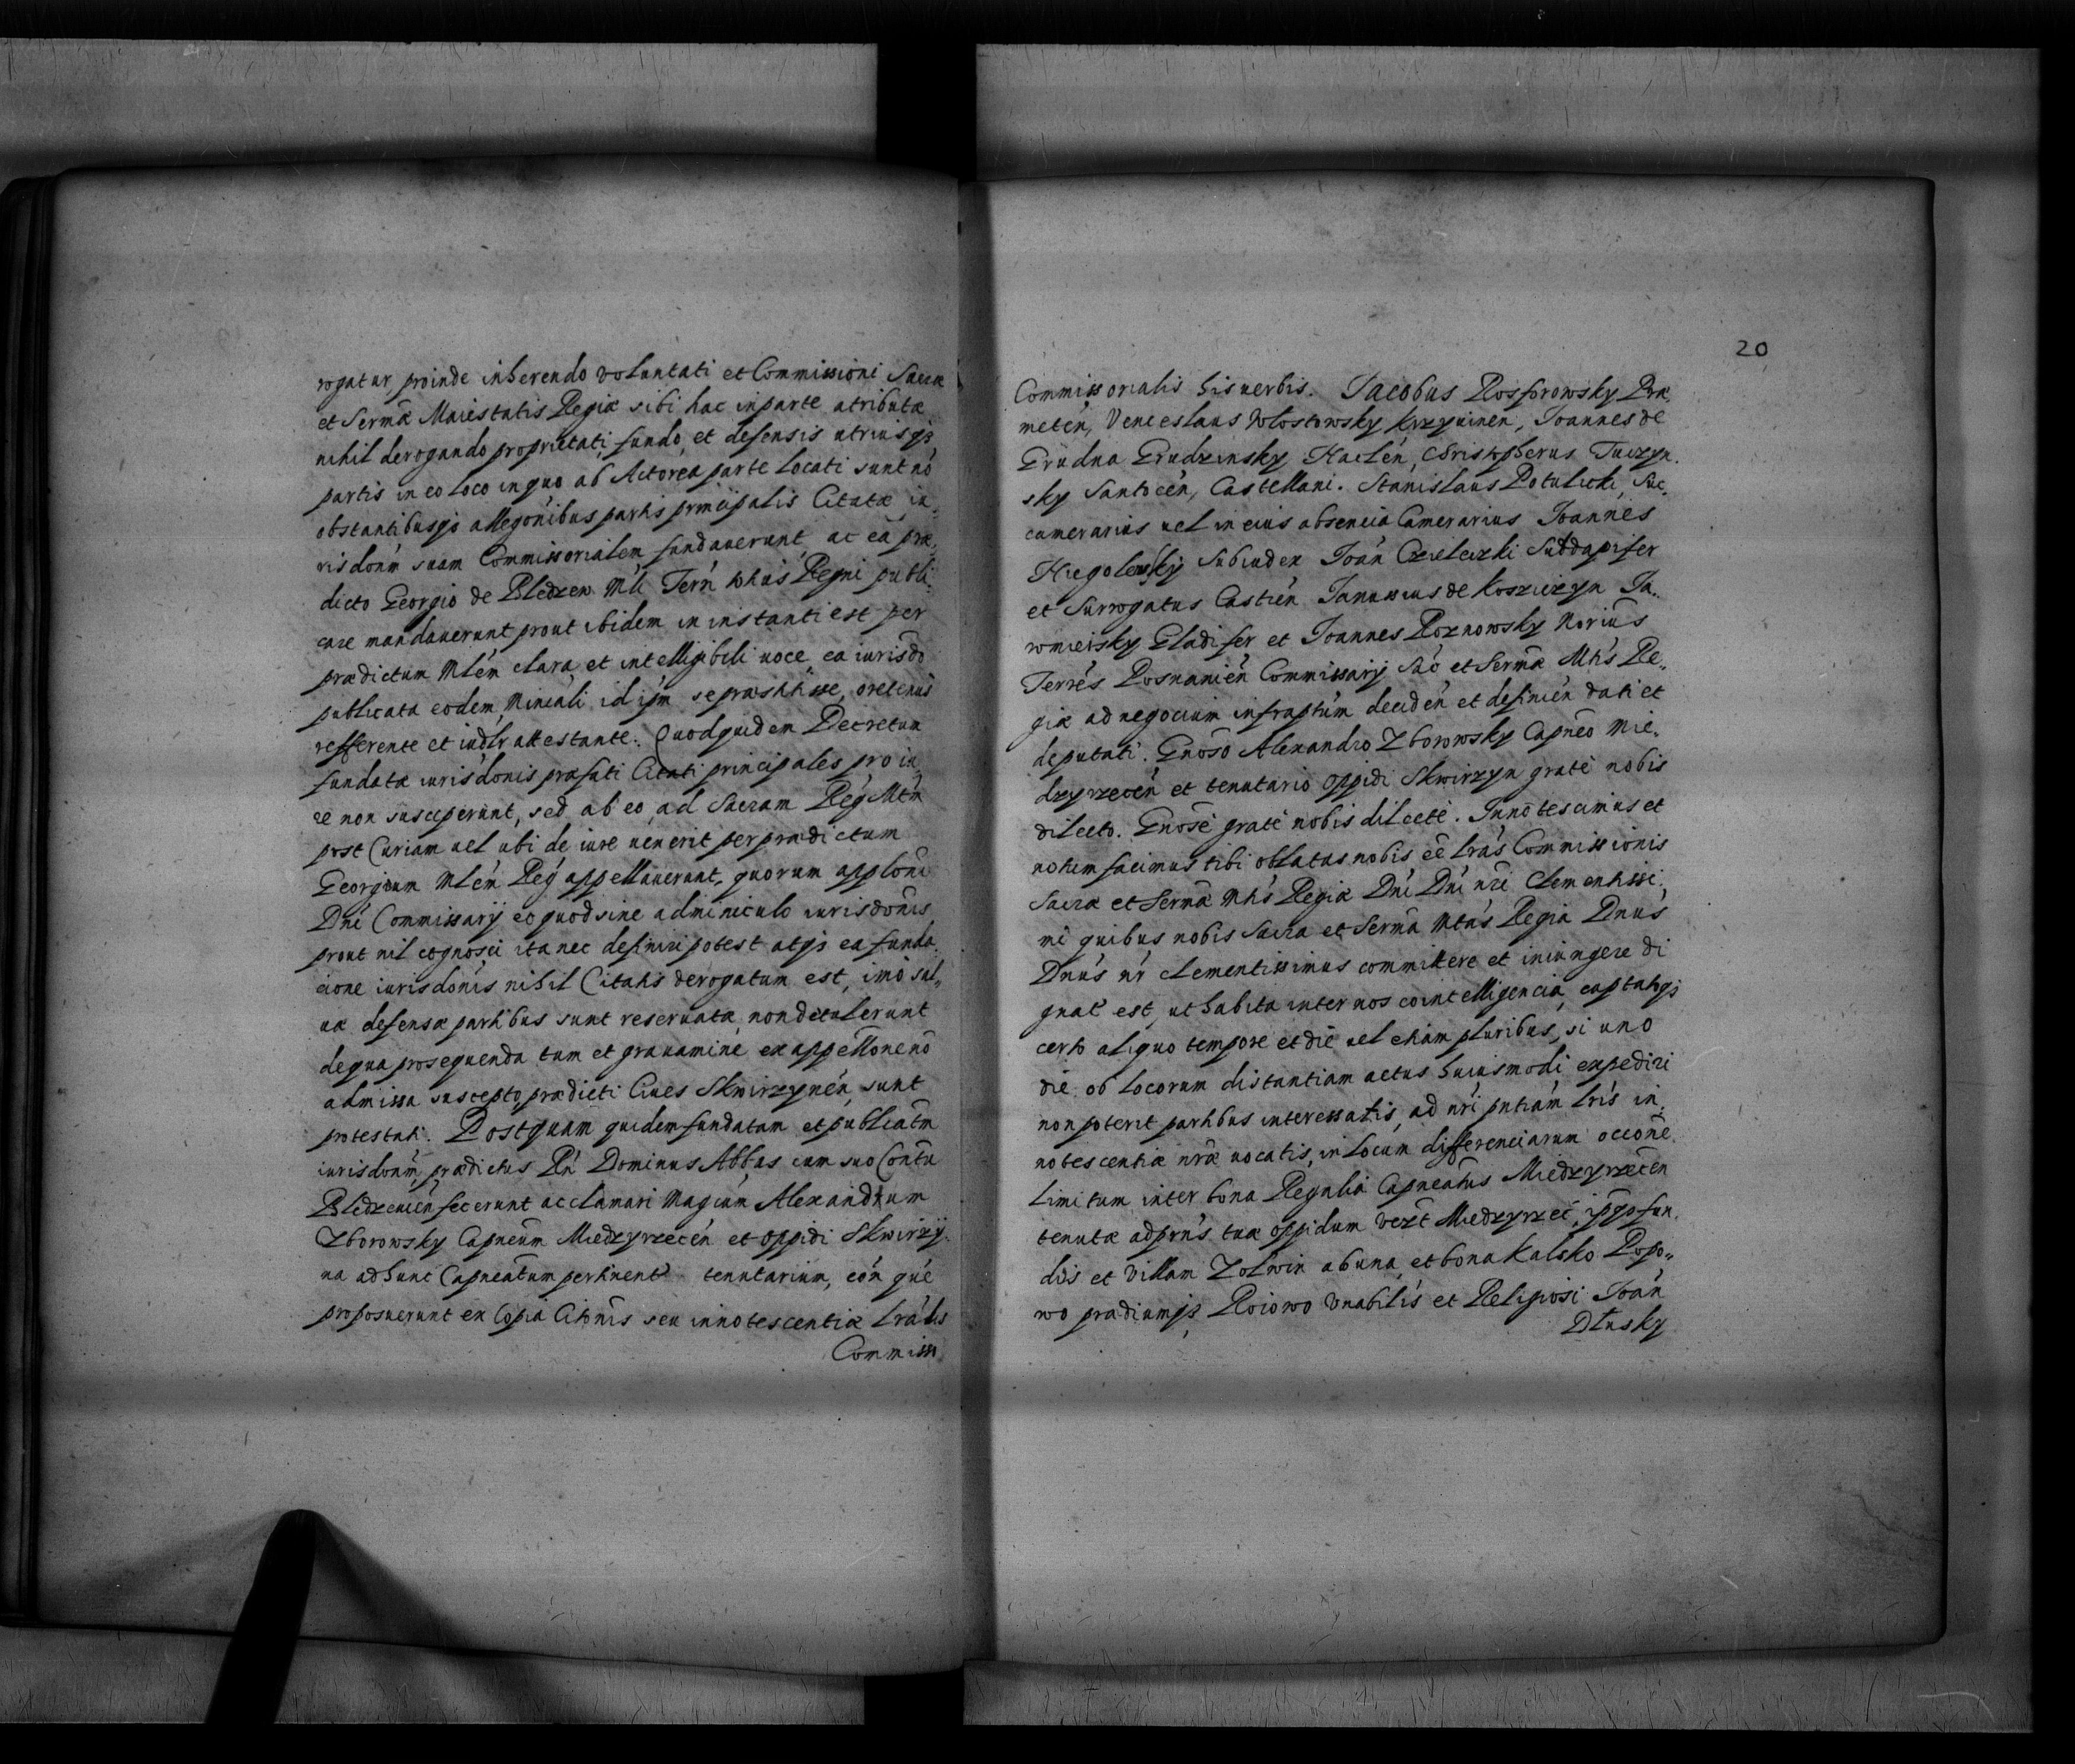 rogatur, proinde inherendo voluntati et Commissioni Sacrae
et Sermae Maiestatis Regiae sibi hac in parte atributae
nihil derogando proprietati, fundo, et defensis utriusqз
partis in eo loco in quo ab Actorea parte locati sunt nō
obstantibusqз allegōnibus partis principalis Citatae iu,
risdonm̄ suam Commissorialem fundauerunt, ac eā prae,
dicto Georgio de Bledzew Mlī Terrī Mtīs Regni publi,
care mandauerunt prout ibidem in instanti est per
praedictum Mlēm clara et intelligibili uoce, ea iurisdō
publicata eodem Miniāli id ipm̄ se praestitisse, oretenus
refferente et iudlr attestante. Quodquidem Decretum
fundatae iurisdōnis praefati Citati principales pro iu,
re non susceperunt, sed ab eo, ad Sacram Reg Mtm̄
post Curiam uel ubi de iure uenerit per praedictum
Georgium Mlēm Reg appellauerunt, quorum applōni
Dnī Commissarij eo quod sine adminiculo iurisdōnis
prout nil cognosci ita nec definiri potest atqз ea funda,
cione iurisdōnis nihil Citatis derogatum est, imo sal,
uae defensae partibus sunt reseruatae, non detulerunt
de qua prosequenda tum et grauamine ex appellōne nō
admissa suscepto, praedicti Ciues Skwirzynēn, sunt
protestati. Postquam quidem fundatam et publicatm̄
iurisdonm̄, praedictus Rn̄ Dominus Abbas cum suo Conūtu
Bledzeuiēn fecerunt acclamari Magcūm Alexandrum
Zborowsky Capneūm Miedzyrzecēn et oppidi Skwirzy,
na ad hunc Capneātum pertinent tenutarium, eōn que
proposuerunt ex Copia Citōnis seu innotescentiae Lrālis
Commiss
20
Commissorialis his uerbis. Jacobus Rosprowsky Prae,
metēn, Venceslaus Wlostowsky Krzyuinēn, Joannes de
Grudna Grudzinsky Naclēn, Christopherus Tuczyn,
sky Santocēn, Castellani. Stanislaus Potulicki, Suc,
camerarius uel in eius absencia Camerarius Joannes
Niegolewsky Subiudex Joān Czieleczki Subdapifer
et Surrogatus Castrēn Janussius de Kosziczyn Ja,
wnieisky Gladifer et Joannes Roznowsky Norius
Terres Posnaniēn Commissarij Sāo et Sermae Mtis Re,
giae ad negocium infraptūm decidēn et definiēn dati et
deputati. Gnōso Alexandro Zborowsky Capnēo Mie,
dzyrzecēn et tenutario oppidi Skwirzyn grate nobis
dilecto. Gnōse grate nobis dilecte. Innotescimus et
notum facimus tibi oblatas nobis eē Lrās Commissionis
Sacrae et Sermae Mtis Regiae Dnī Dnī nrī Clementissi,
mi quibus nobis Sacra et Serma Mtas Regia Dnūs
Dnūs nr clementissimus committere et iniungere di
gnat est, ut habita inter nos cointelligencia, captatoqз
certo aliquo tempore et die uel etiam pluribus, si uno
die ob locorum distantiam actus huiusmodi expediri
non poterit partibus interessatis, ad nrī pntiām Lrīs in,
notescentiae nrae uocatis, in locum differenciarum occōne
Limitum inter bona Regalia Capneātus Miedzyrzecēn
tenutae adprns tuae oppidum uerst Miedzyrzec, ipsqз fun,
dis et villam Zolwin ab una, et bona Kalsko Popo,
wo praediumqз Roiowo Vnabilis et Religiosi Joān
Dlusky